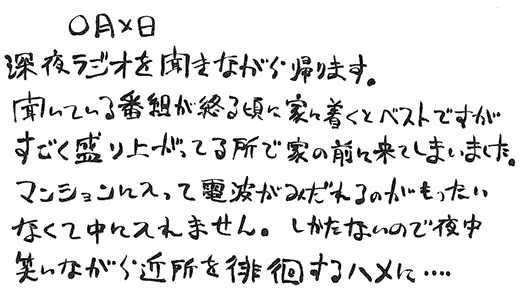 〇月×日
深夜ラジオを聞きながら帰ります。
聞いている番組が終る頃に家に着くとベストですが
すごく盛り上がってる所で家の前に来てしまいました。
マンションに入って電波がみだれるのがもったい
なくて中に入れません。しかたないので夜中
笑いながら近所を徘徊するハメに‥‥